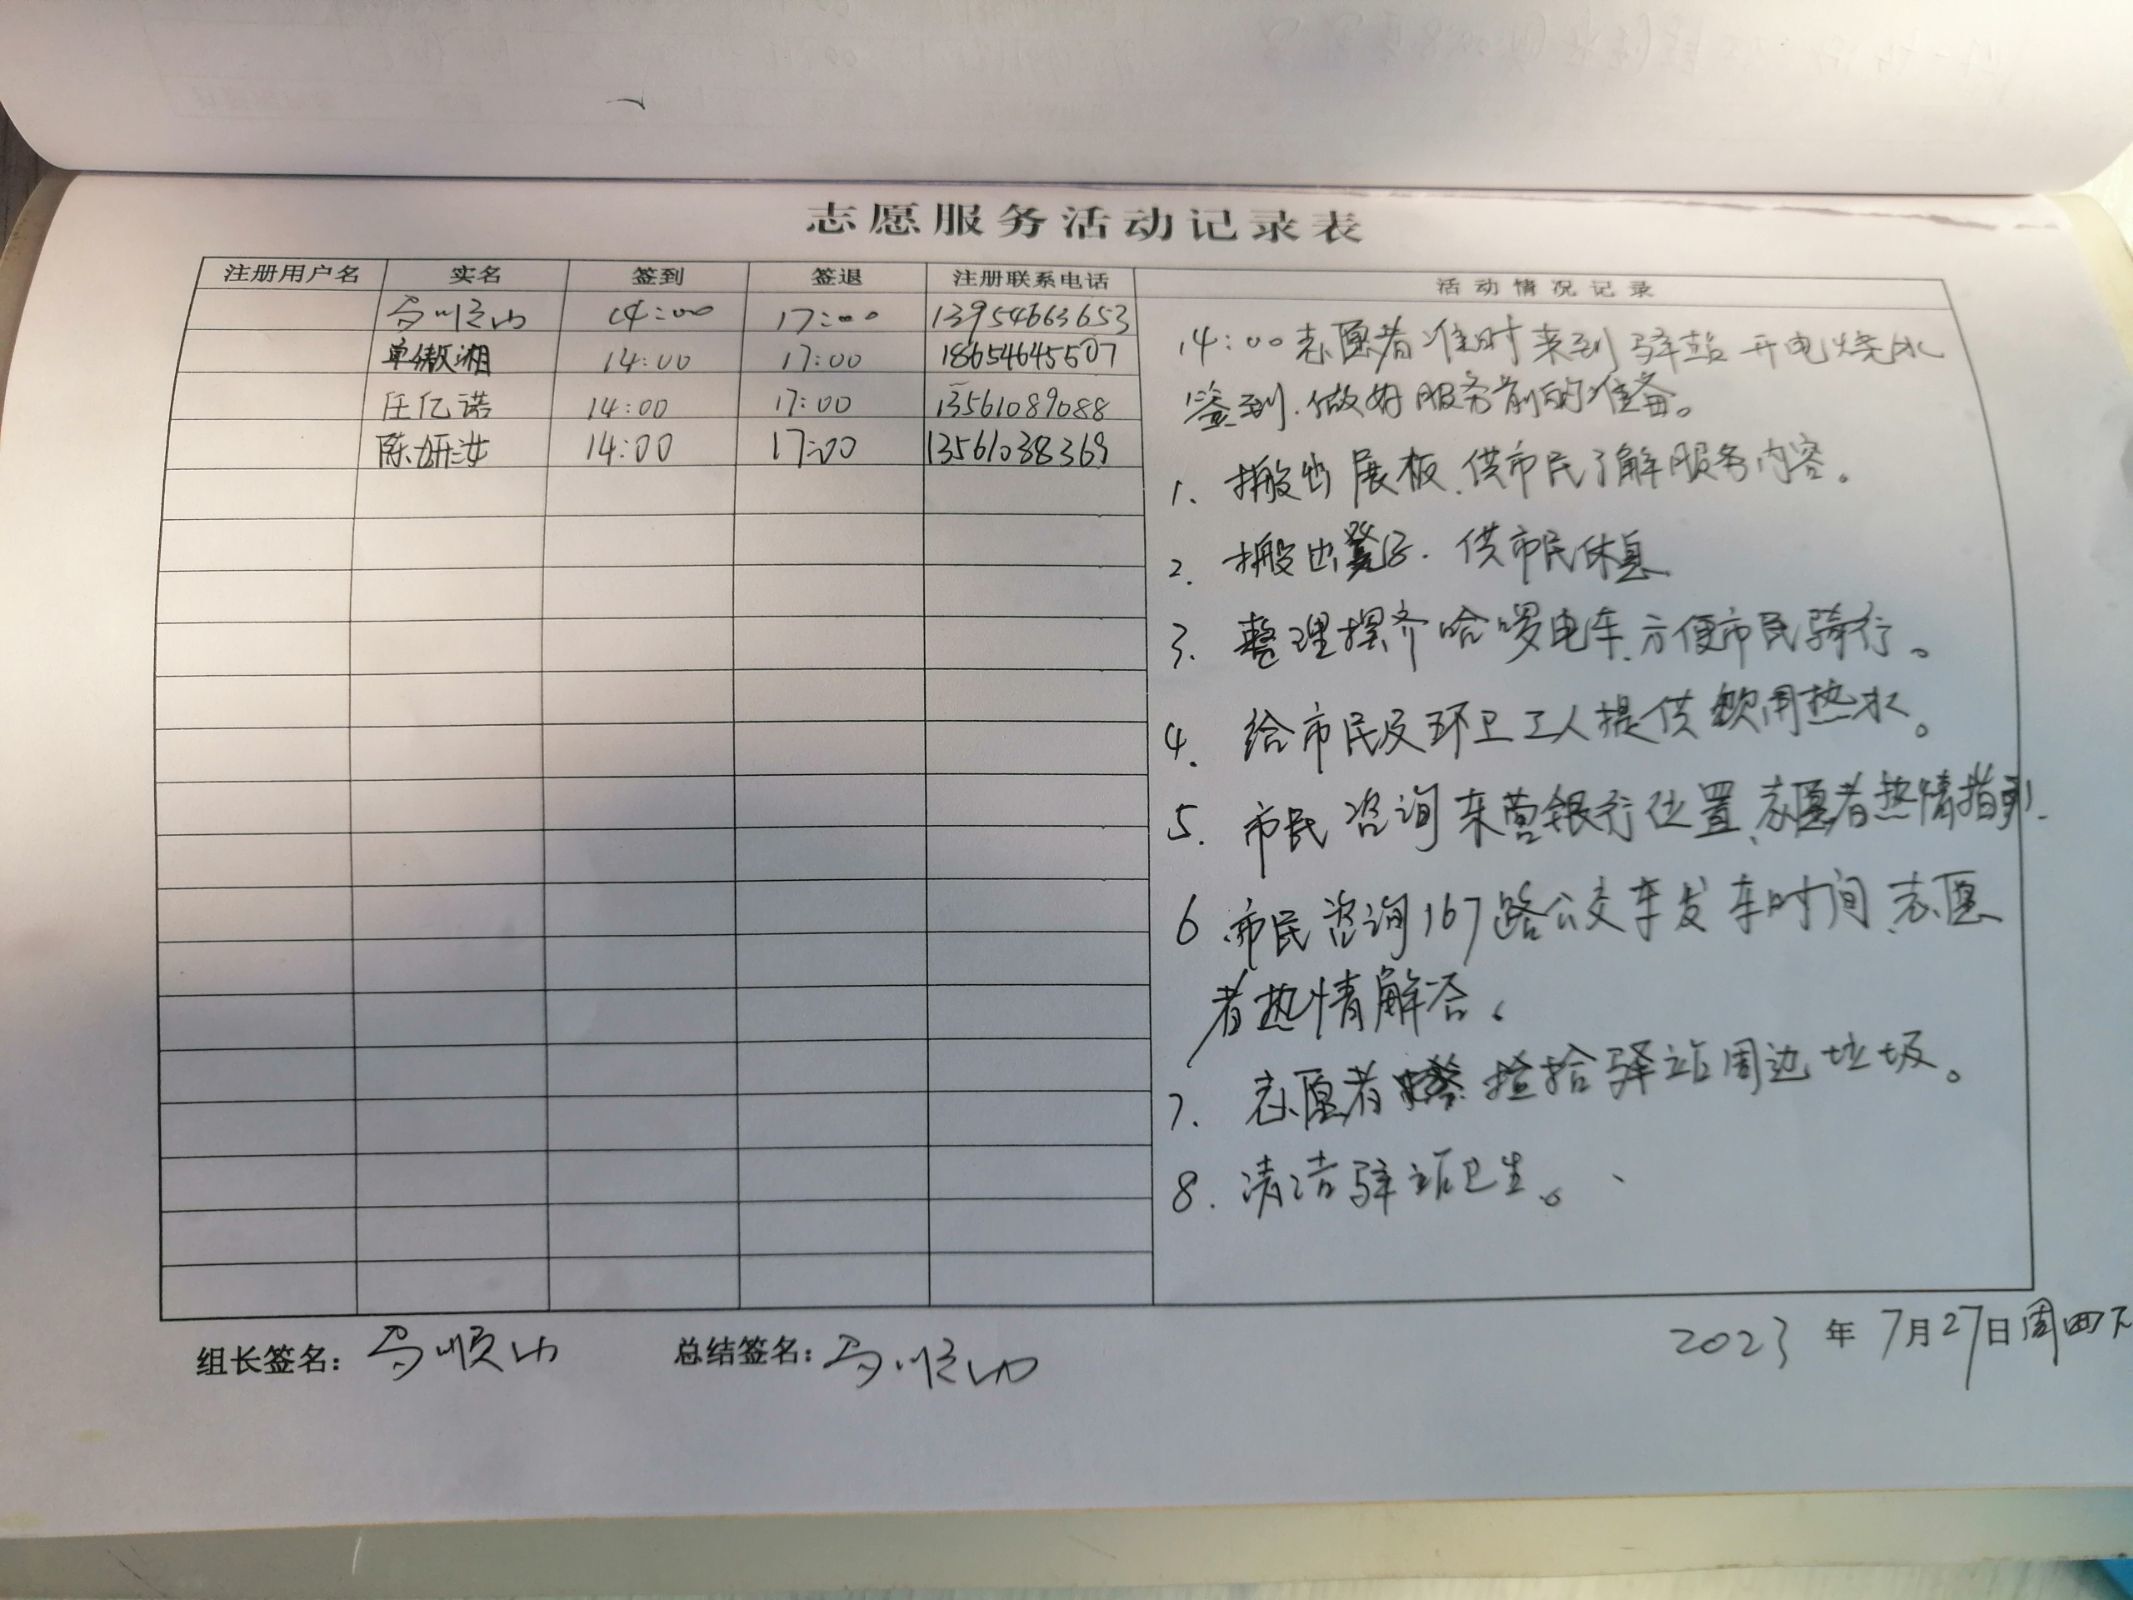 志愿服务活动记录表
注册用户名 实名 签到 签退 注册联系电话 活动情况记录
马顺山 14:00 17:00 13954663653
单傲湘 14:00 17:00 18654645507
任亿诺 14:00 17:00 13561089088
陈妍汝 14:00 17:00 13561038369
14:00志愿者准时来到驿站开电烧水
签到.做好服务前的准备。
1. 搬出展板.供市民了解服务内容。
2. 搬出凳子.供市民休息
3. 整理摆齐哈啰电车.方便市民骑行。
4. 给市民及环卫工人提供饮用热水。
5. 市民咨询东营银行位置.志愿者热情指引.
6 市民咨询167路公交车发车时间.志愿
者热情解答。
7. 志愿者捡拾驿站周边垃圾。
8. 清洁驿站卫生。
组长签名：马顺山 总结签名：马顺山 2023年7月27日周四下